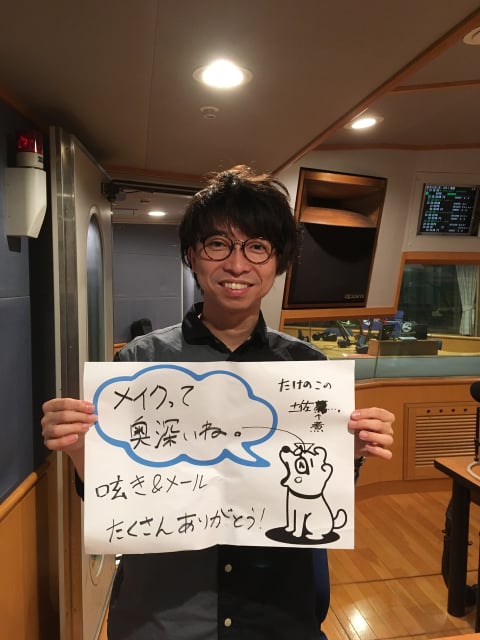 メイクって
奥深いね。
たけのこの
土佐煮…。
呟き&メール
たくさんありがとう!